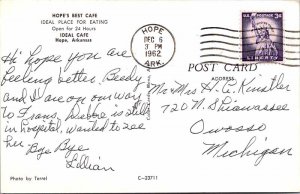 HOPE'S BEST CAFE
IDEAL PLACE FOR EATING
Open for 24 Hours
IDEAL CAFE
Hope, Arkansas
Hi hope you are
feeling better. Beedy
and I are on our way
to Trans, Debbie is still
in hospital, wanted to see
her
Bye Bye
Lillian
Photo by Terrel
C-23711
HOPE
DEC 6
3 PM
1962
ARK.
U.S. POSTAGE
3¢
LIBERTY
POST CARD
ADDRESS
Mr Mrs H. C. Kinstler
720 N. Shiawassee
Owosso
Michigan